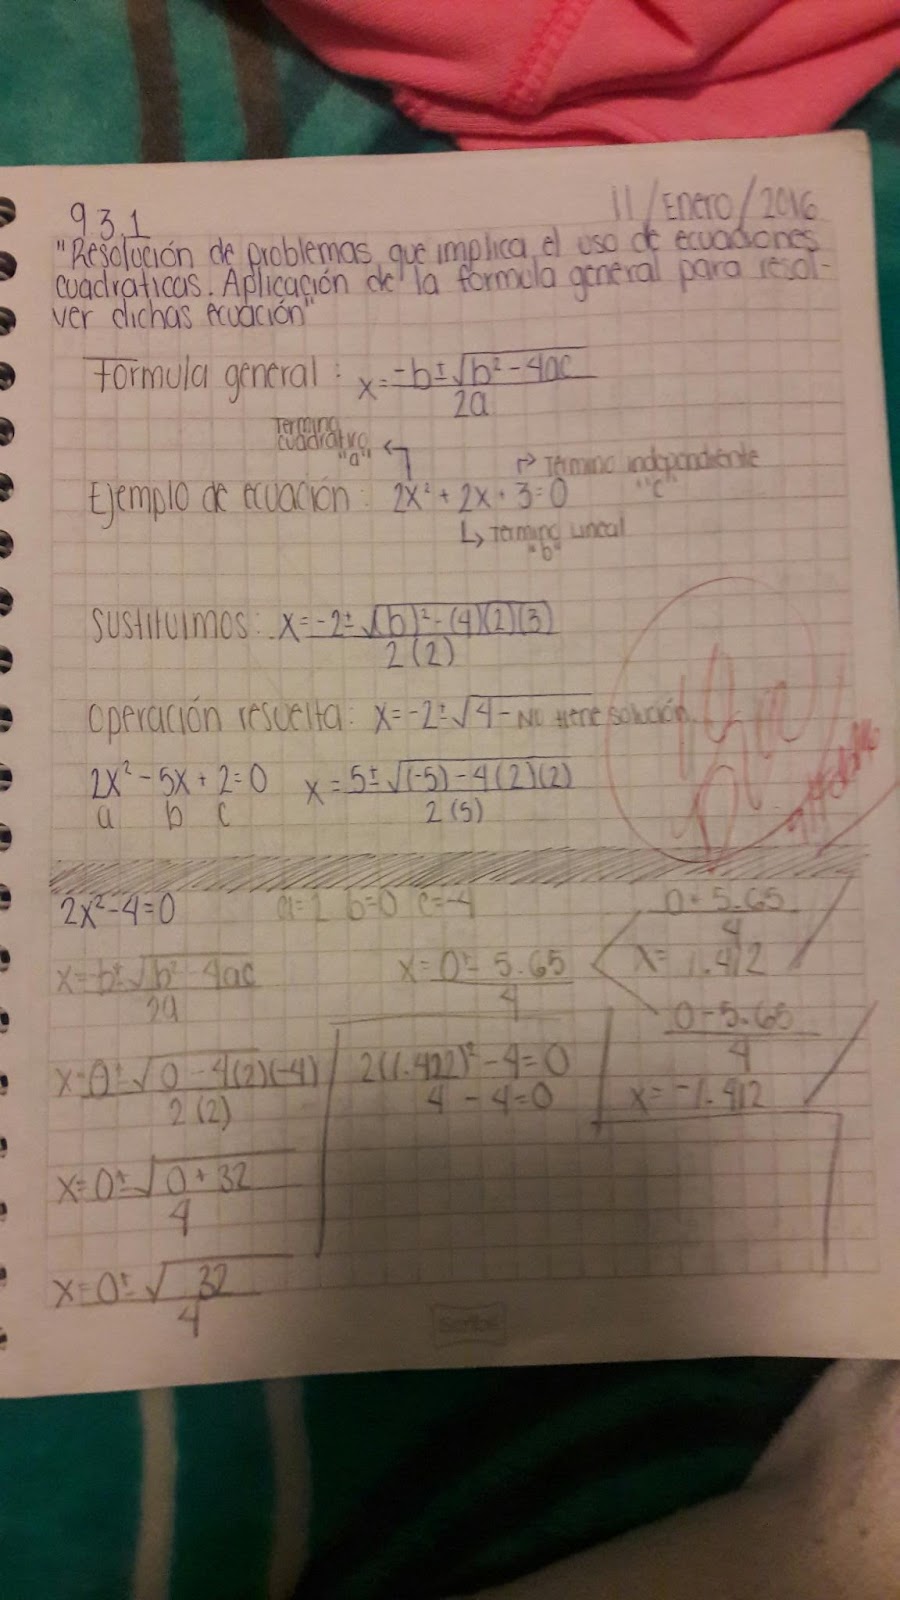 9 3.1
11/Enero/2016
"Resolución de problemas que implica el uso de ecuaciones
cuadraticas. Aplicación de la formula general para resol-
ver dichas ecuación"
Formula general: x=-b±√b²-4ac
2a
Termino
cuadratico
"a"
Termino independiente
"c"
Ejemplo de ecuación: 2x²+2x+3=0
Termino lineal
"b"
Sustituimos: x=-2±√(b)²-(4)(2)(3)
2(2)
Operación resuelta: x=-2±√4- No tiene solución
2x²-5x+2=0 x=5±√(-5)-4(2)(2)
a b c 2(5)
2x²-4=0 a=2 b=0 c=-4
x=-b±√b²-4ac
2a
x=0±√0-4(2)(-4)
2(2)
x=0±√0+32
4
x=0±√32
4
x=0±5.65
4
0+5.65
4
x=1.412
0-5.65
4
x=-1.412
2(1.422)²-4=0
4-4=0
Scribe